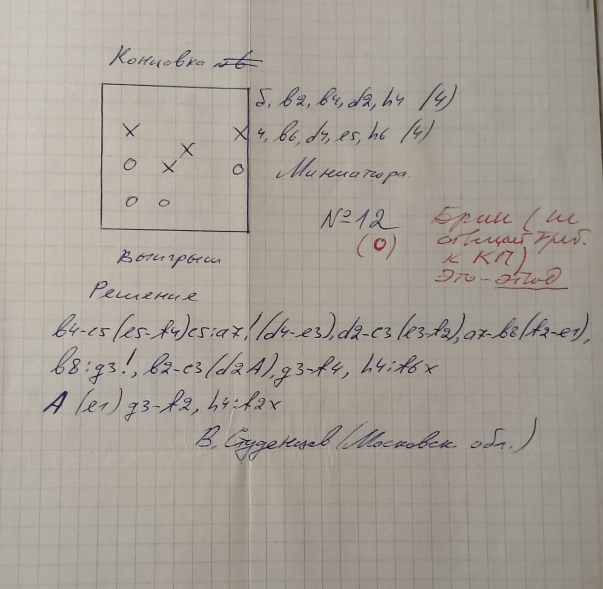 Концовка
б. в2, в4, d2, h4 (4)
ч. в6, d4, e5, h6 (4)
Миниатюра.
№12
(0)
Брак (не
отвечает треб.
к КП)
Это - этюд
Выигрыш
Решение
в4-c5 (e5-f4) c5:a7! (d4-e3), d2-c3 (e3-f2), a7-в8 (f2-e1),
в8:g3!, в2-c3 (d2A), g3-f4, h4:f6x
A (e1) g3-f2, h4:f2x
В. Студенцов (Московск. обл.)